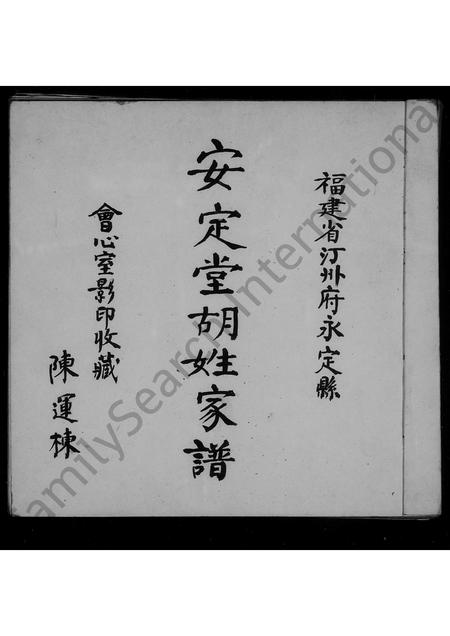 福建省汀州府永定縣
安定堂胡姓家譜
會心室影印收藏
陳運棟
FamilySearch International